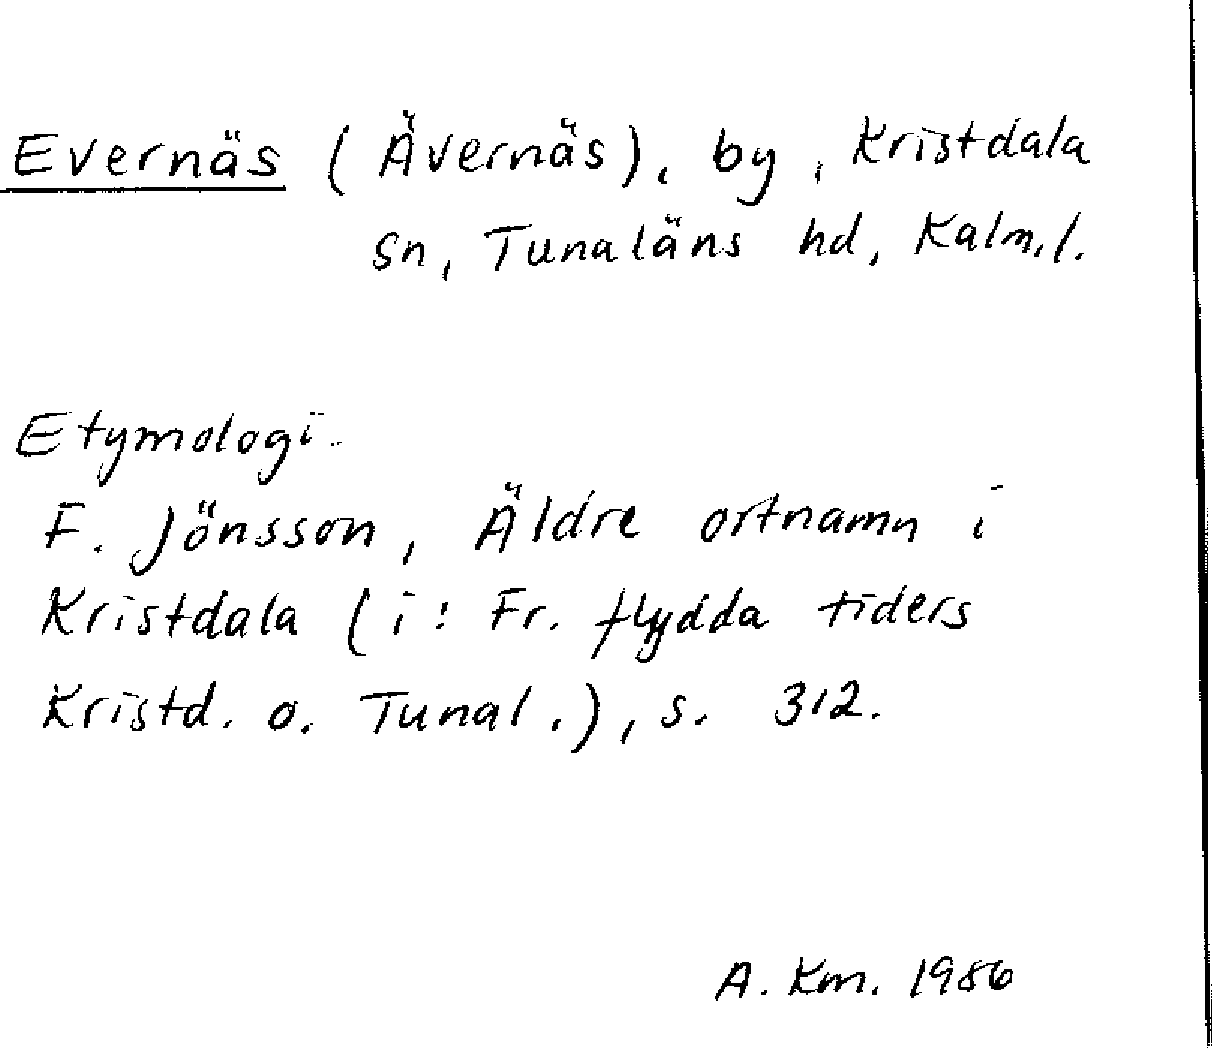 Evernäs (Ävernäs), by, Kristdala
sn, Tunaläns hd, Kalm.l.
Etymologi.
F. Jönsson, Äldre ortnamn i
Kristdala (i: Fr. flydda tiders
Kristd. o. Tunal.), s. 312.
A. Km. 1986